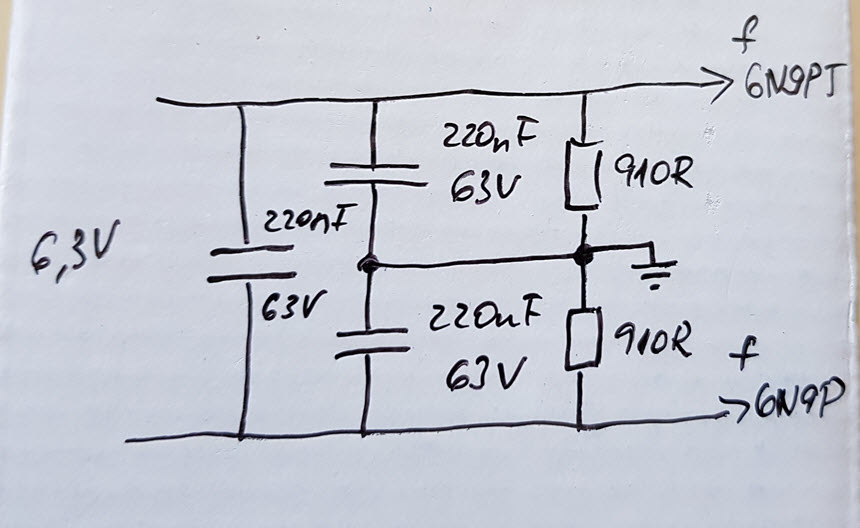 f
6N9PJ
220nF
63V
910R
6,3V
220nF
63V
220nF
63V
910R
f
6N9P